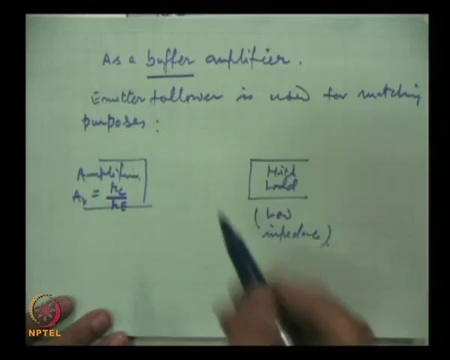 As a buffer amplifier.
Emitter follower is used for matching
purposes:
Amplifier
Av = rc
rE
High
Load
(Low
impedance)
NPTEL